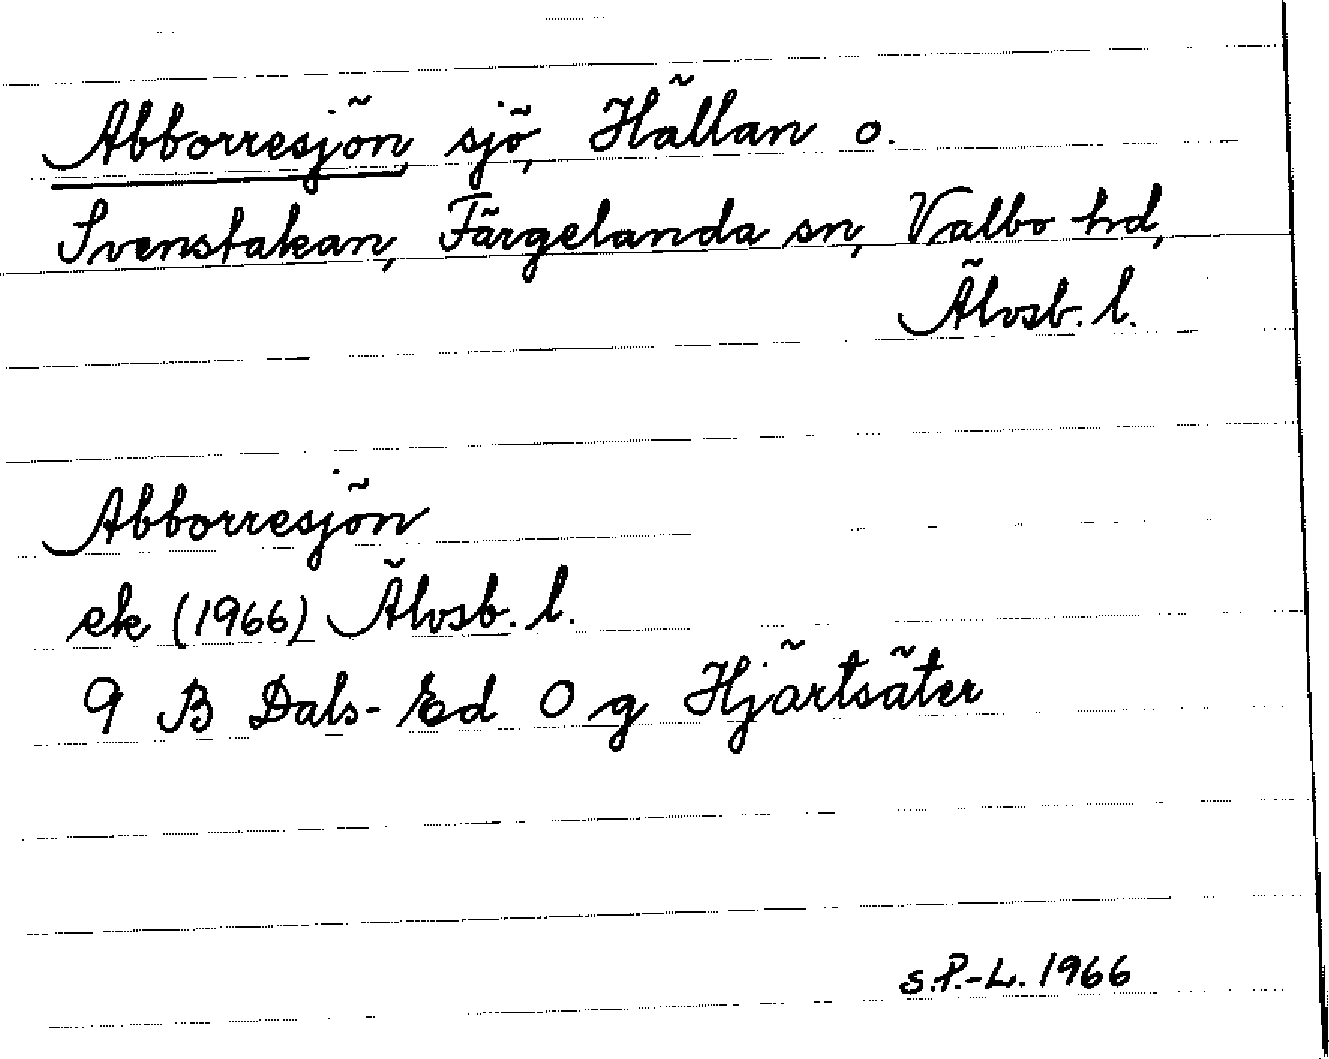 Abborresjön, sjö, Hällan o.
Svenstakan, Färgelanda sn, Valbo hd,
Älvsb. l.
Abborresjön
ek (1966) Älvsb. l.
9 B Dals-Ed 0 g Hjärtsäter
S.P.-L. 1966